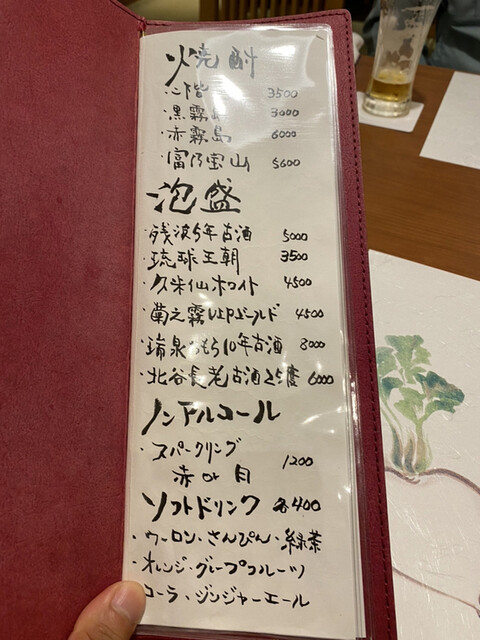 焼酎
二階堂 3500
・黒霧島 3000
・赤霧島 6000
・富乃宝山 5600
泡盛
・残波5年古酒 5000
・琉球王朝 3500
・久米仙ホワイト 4500
・菊之露VIPゴールド 4500
・瑞泉おもろ10年古酒 8000
・北谷長老古酒25度 6000
ノンアルコール
・スパークリング
赤or白 1200
ソフトドリンク 各400
・ウーロン・さんぴん・緑茶
・オレンジ・グレープフルーツ
コーラ・ジンジャーエール